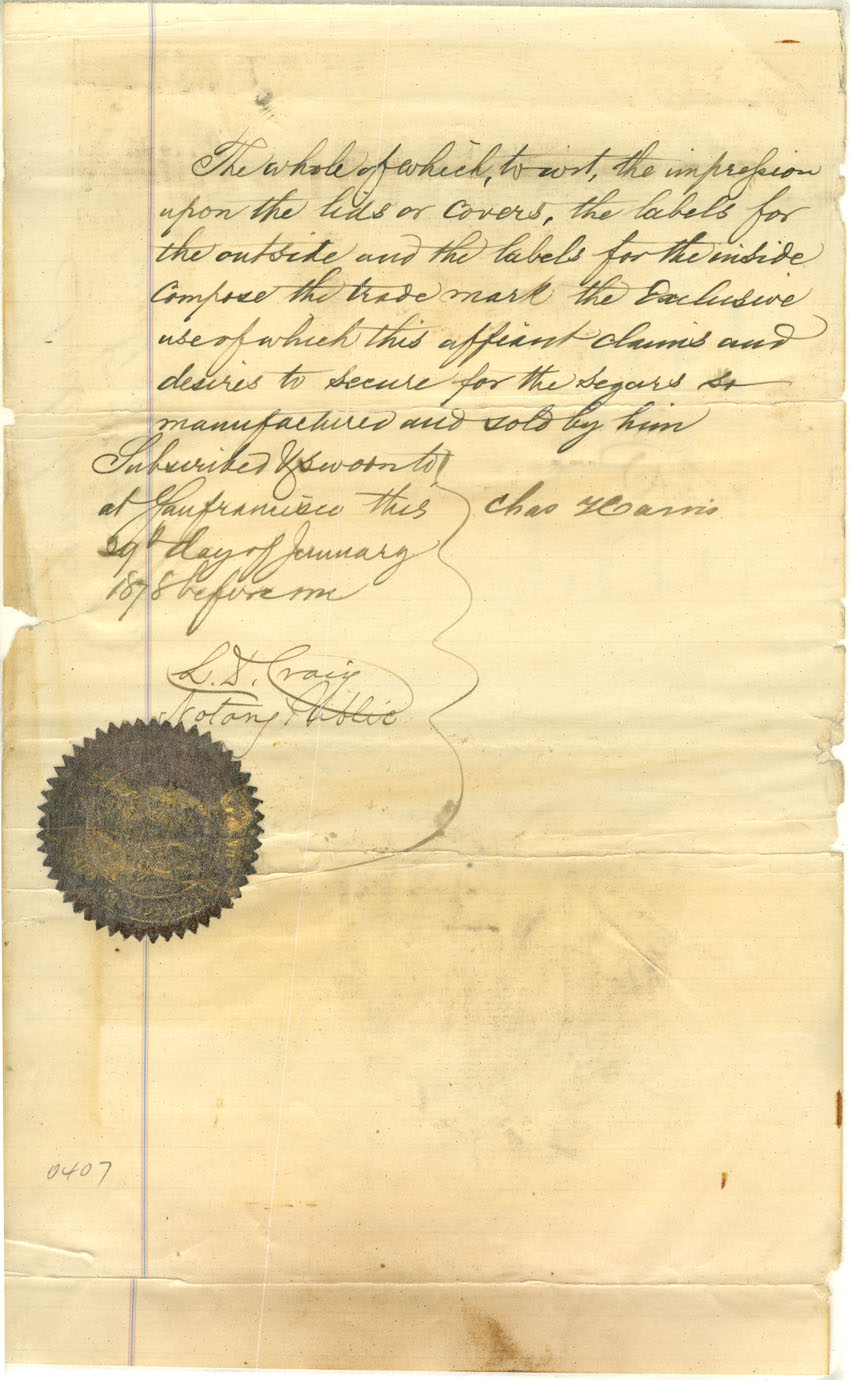 The whole of which, to wit, the impression
upon the lids or covers, the labels for
the outside and the labels for the inside
compose the trade mark the Exclusive
use of which this affiant claims and
desires to secure for the segars so
manufactured and sold by him
Subscribed & sworn to
at San francisco this
Chas Harris
29th day of January
1878 before me
L. D. Craig
Notary Public
0407